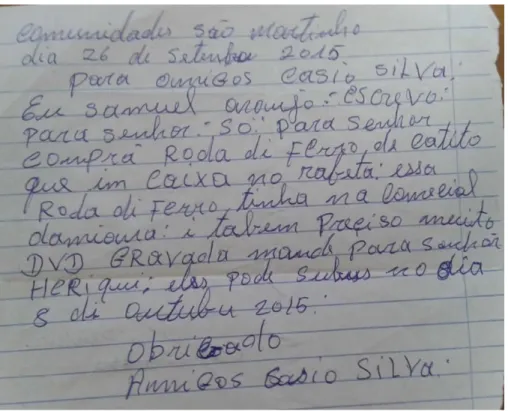 Comunidades são martinho
dia 26 de Setembro 2015
para amigos Casio SilVa:
Eu Samuel araujo: escrevo:
para senhor: só: para senhor
comprá Roda di Ferro, de Catito
que im Caixa no rabeta: essa
Roda di Ferro, tinha na Comecial
damiana: i tabem Preciso muito
DVD GRavada manda para senhor
HeRiqui; eles pode Subus no dia
8 di outubu 2015:
obrigado
Amigos Casio SilVa: